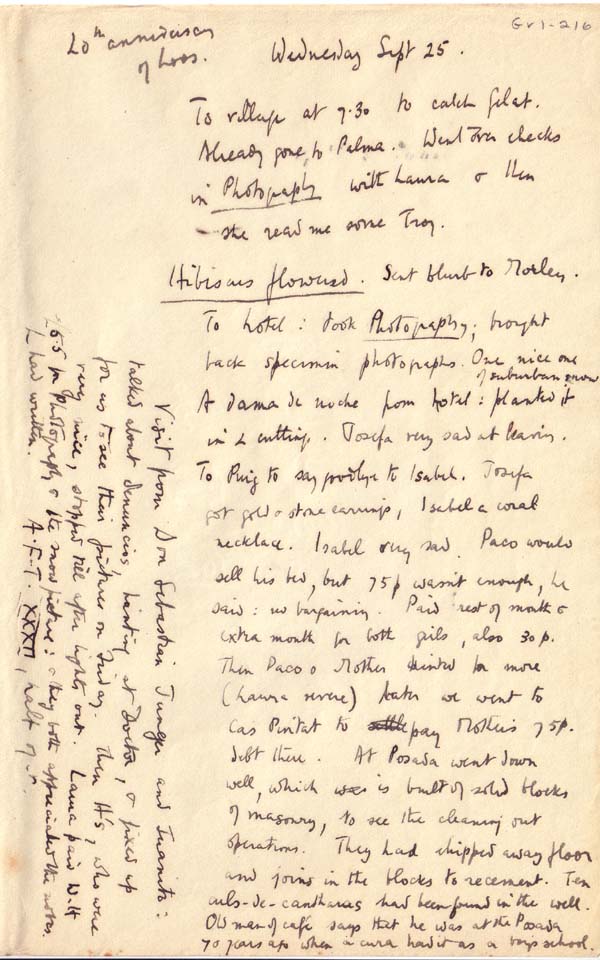 Gr 1-216
20th anniversary
of Loos.
Wednesday Sept 25.
To village at 7.30 to catch Gelat.
Already gone to Palma. Went over checks
in Photography with Laura & then
she read me some Troy.
Hibiscus flowered. Sent blurb to Morley.
To hotel: took Photography; brought
back specimin photographs. One nice one
of suburban snow
A dama de noche from hotel: planted it
in 2 cuttings. Josefa very sad at leaving.
To Puig to say goodbye to Isabel. Josefa
got gold & stone earrings, Isabel a coral
necklace. Isabel very sad. Paco would
sell his bed, but 75p wasn't enough, he
said: no bargaining. Paid rest of month &
extra month for both girls, also 30p.
Then Paco & Mother hinted for more
(Laura severe) later we went to
Cas Pintat to pay Mother's 75p.
debt there. At Posada went down
well, which is built of solid blocks
of masonry, to see the cleaning out
operations. They had chipped away floor
and joins in the blocks to recement. Ten
culs-de-cantharas had been found in the well.
Old man of café says that he was at the Posada
70 years ago when a cura had it as a boys school.
Visit from Don Sebastian Junger and Juanito:
talked about denuncias, hinting at Doctor, & fixed up
for us to see their pictures on Friday. Then H's, who were
very nice, stopped till after lights out. Laura paid W.H
£65 for Photography & the snow picture: & they both appreciated the notes
L had written. A.F.T. XXXII, half of